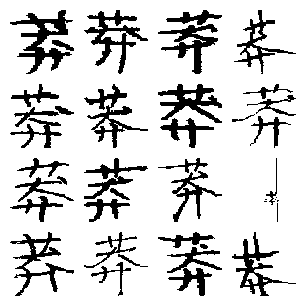 莽莽莽莽
莽莽莽莽
莽莽莽
莽莽莽莽